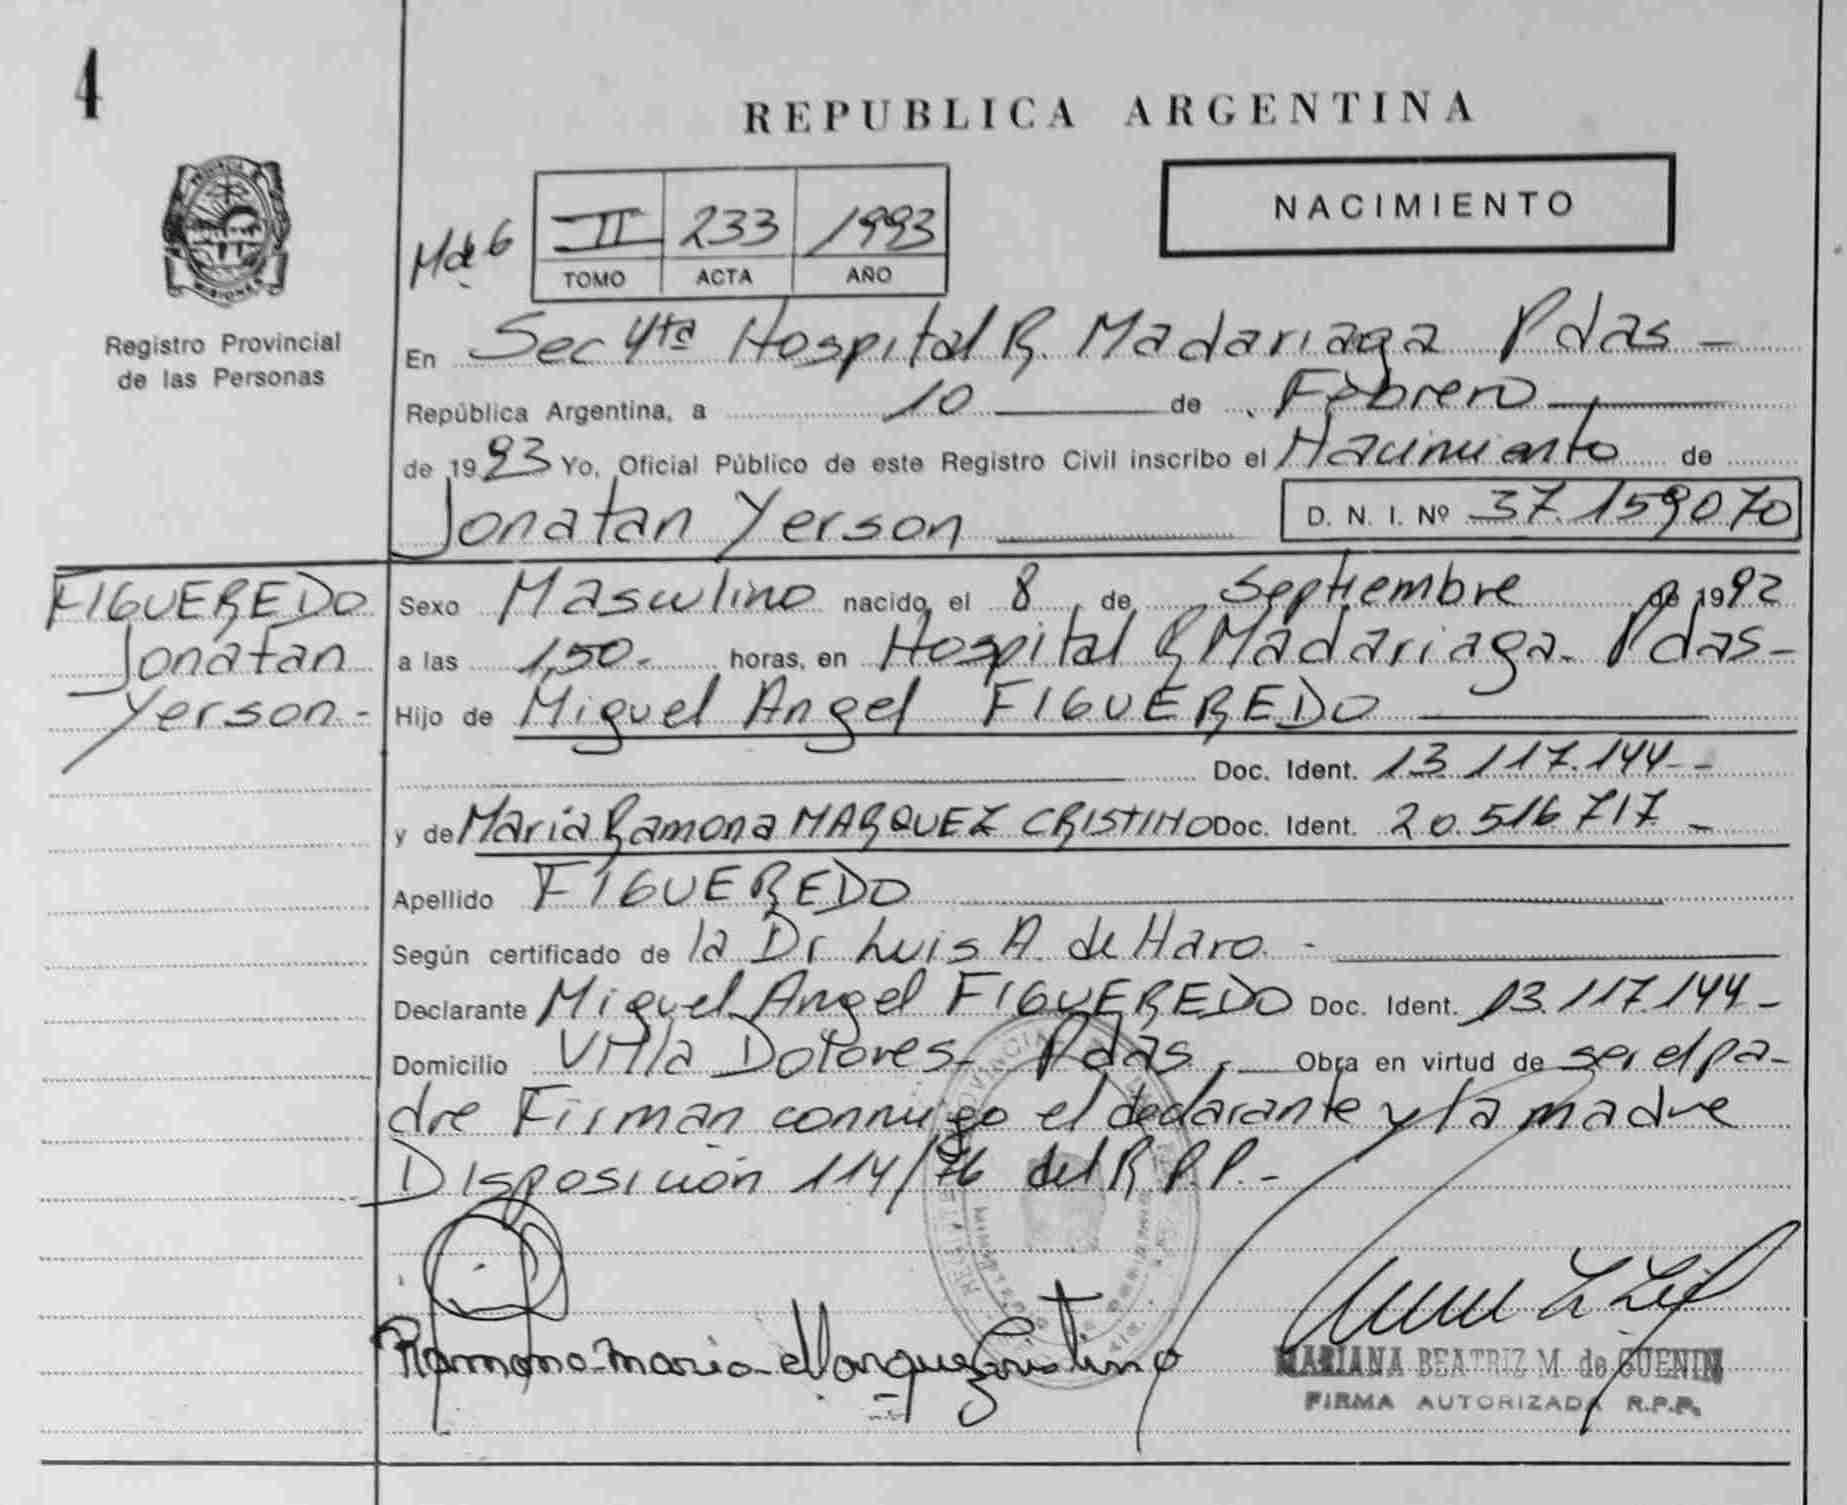 4
REPUBLICA ARGENTINA
NACIMIENTO
II 233 1993
TOMO ACTA AÑO
PROVINCIA DE
MISIONES
Registro Provincial
de las Personas
En Sec 4ta Hospital R. Madariaga Pdas -
República Argentina, a 10 de Febrero
de 1993 Yo, Oficial Público de este Registro Civil inscribo el Nacimiento de
Jonatan Yerson D. N. I. Nº 37.159070
FIGUEREDO
Jonatan
Yerson.-
Sexo Masculino nacido el 8 de Septiembre de 1992
a las 1,50.- horas, en Hospital R Madariaga. Pdas-
Hijo de Miguel Angel FIGUEREDO
Doc. Ident. 13.117.144--
y de Maria Ramona MARQUEZ CRISTINO Doc. Ident. 20.516.717-
Apellido FIGUEREDO
Según certificado de la Dr Luis A. de Haro.-
Declarante Miguel Angel FIGUEREDO Doc. Ident. 13.117.144-
Domicilio Villa Dolores- Pdas. Obra en virtud de ser el pa-
dre Firman conmigo el declarante y la madre
Disposición 114/76 del R.P.P.-
Ramona-maria-Marquez Cristino
MARIANA BEATRIZ M. de GUENIN
FIRMA AUTORIZADA R.P.P.